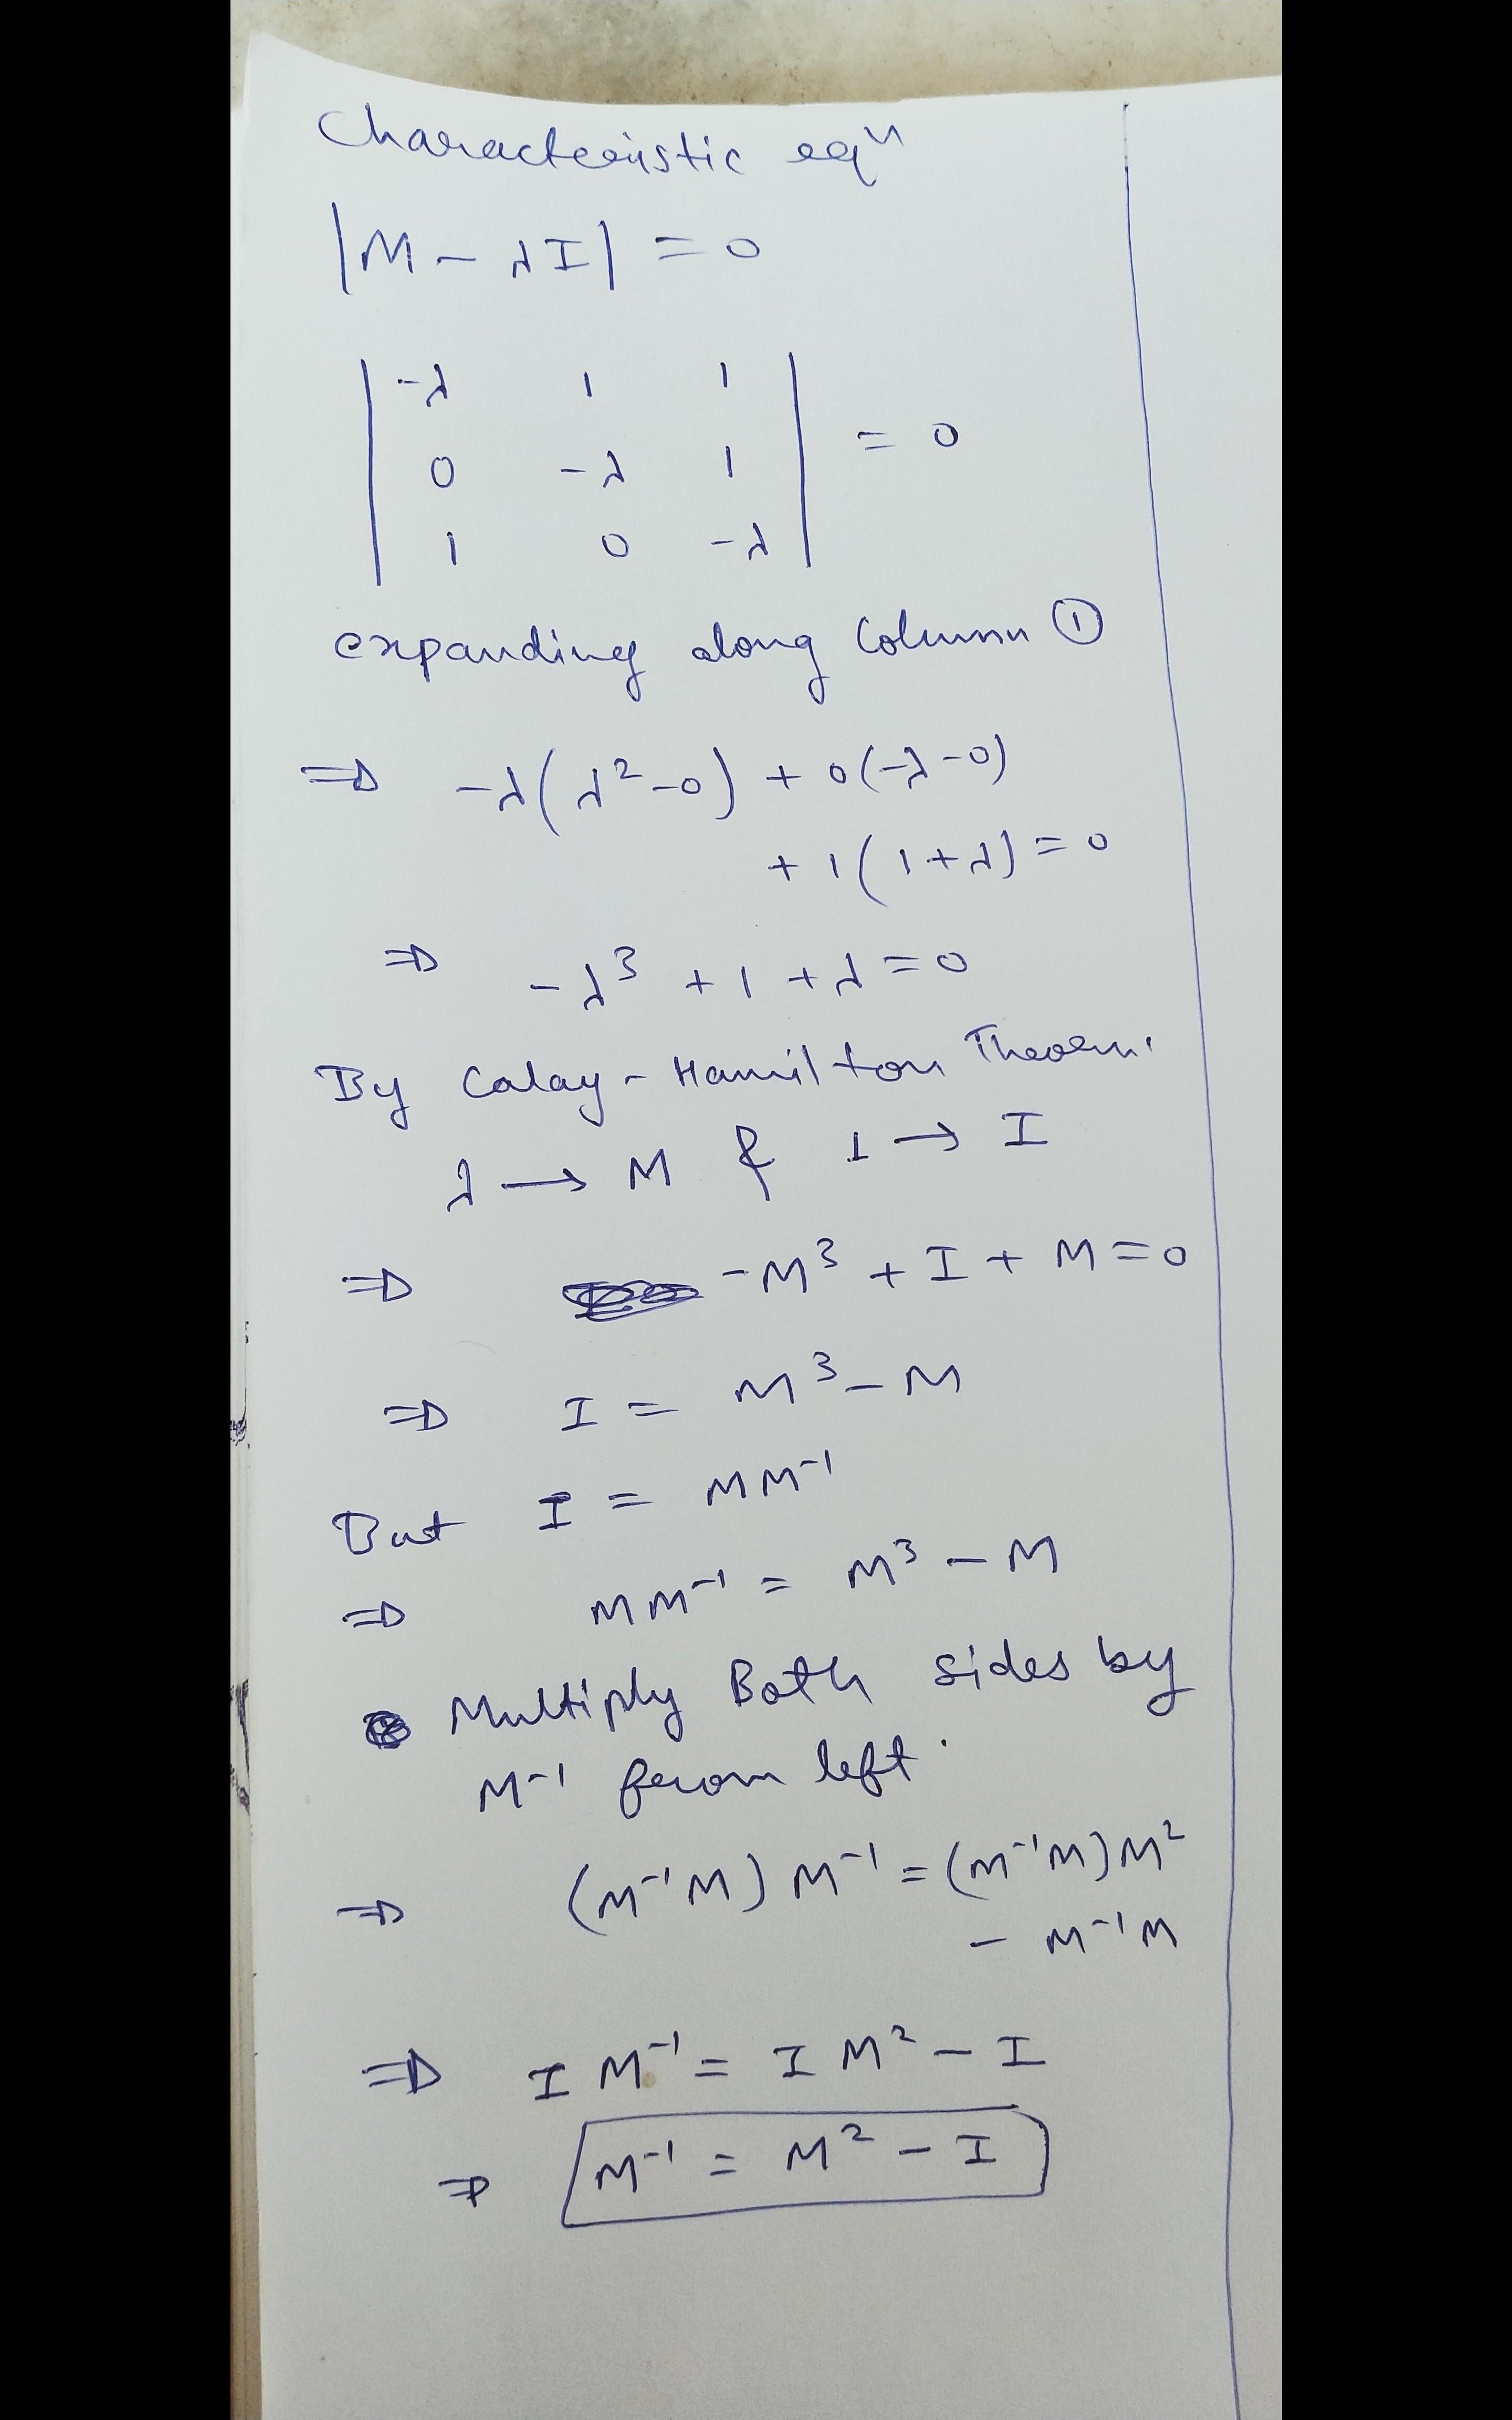 Characteristic eqn
|M - λI| = 0
| -λ 1 1 |
| 0 -λ 1 | = 0
| 1 0 -λ |
expanding along Column ①
⇒ -λ(λ² - 0) + 0(-λ - 0)
+ 1(1 + λ) = 0
⇒ -λ³ + 1 + λ = 0
By Calay - Hamilton Theorem.
λ → M & 1 → I
⇒ -M³ + I + M = 0
⇒ I = M³ - M
But I = MM⁻¹
⇒ MM⁻¹ = M³ - M
Multiply Both sides by
M⁻¹ from left.
⇒ (M⁻¹M) M⁻¹ = (M⁻¹M) M²
- M⁻¹M
⇒ I M⁻¹ = I M² - I
⇒ M⁻¹ = M² - I